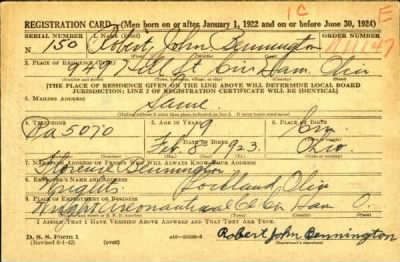 1C
E
REGISTRATION CARD—(Men born on or after January 1, 1922 and on or before June 30, 1924)
SERIAL NUMBER 1. NAME (Print) ORDER NUMBER
N 150 Robert John Bennington 11147
2. PLACE OF RESIDENCE (Print)
Ham. Ohio
[THE PLACE OF RESIDENCE GIVEN ON THE LINE ABOVE WILL DETERMINE LOCAL BOARD
JURISDICTION; LINE 2 OF REGISTRATION CERTIFICATE WILL BE IDENTICAL]
3. MAILING ADDRESS
Same.
4. TELEPHONE 5. AGE IN YEARS 6. PLACE OF BIRTH
5070 19 Cin
DATE OF BIRTH
Feb 8 1923. Ohio.
7. NAME AND ADDRESS OF PERSON WHO WILL ALWAYS KNOW YOUR ADDRESS
Florence Bennington
8. EMPLOYER'S NAME AND ADDRESS
Wrights Lockland, Ohio
9. PLACE OF EMPLOYMENT OR BUSINESS
Wright Aeronautical Ham O.
I AFFIRM THAT I HAVE VERIFIED ABOVE ANSWERS AND THAT THEY ARE TRUE.
D. S. S. Form 1
(Revised 6-1-42) (over)
Robert John Bennington